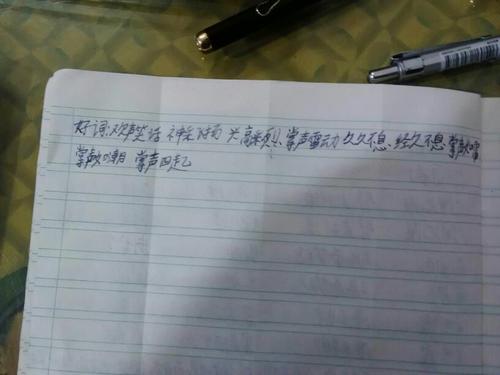 好词:欢声笑语 神采飞扬 兴高采烈、掌声雷动 久久不息、经久不息 掌声如雷
掌声如潮 掌声四起